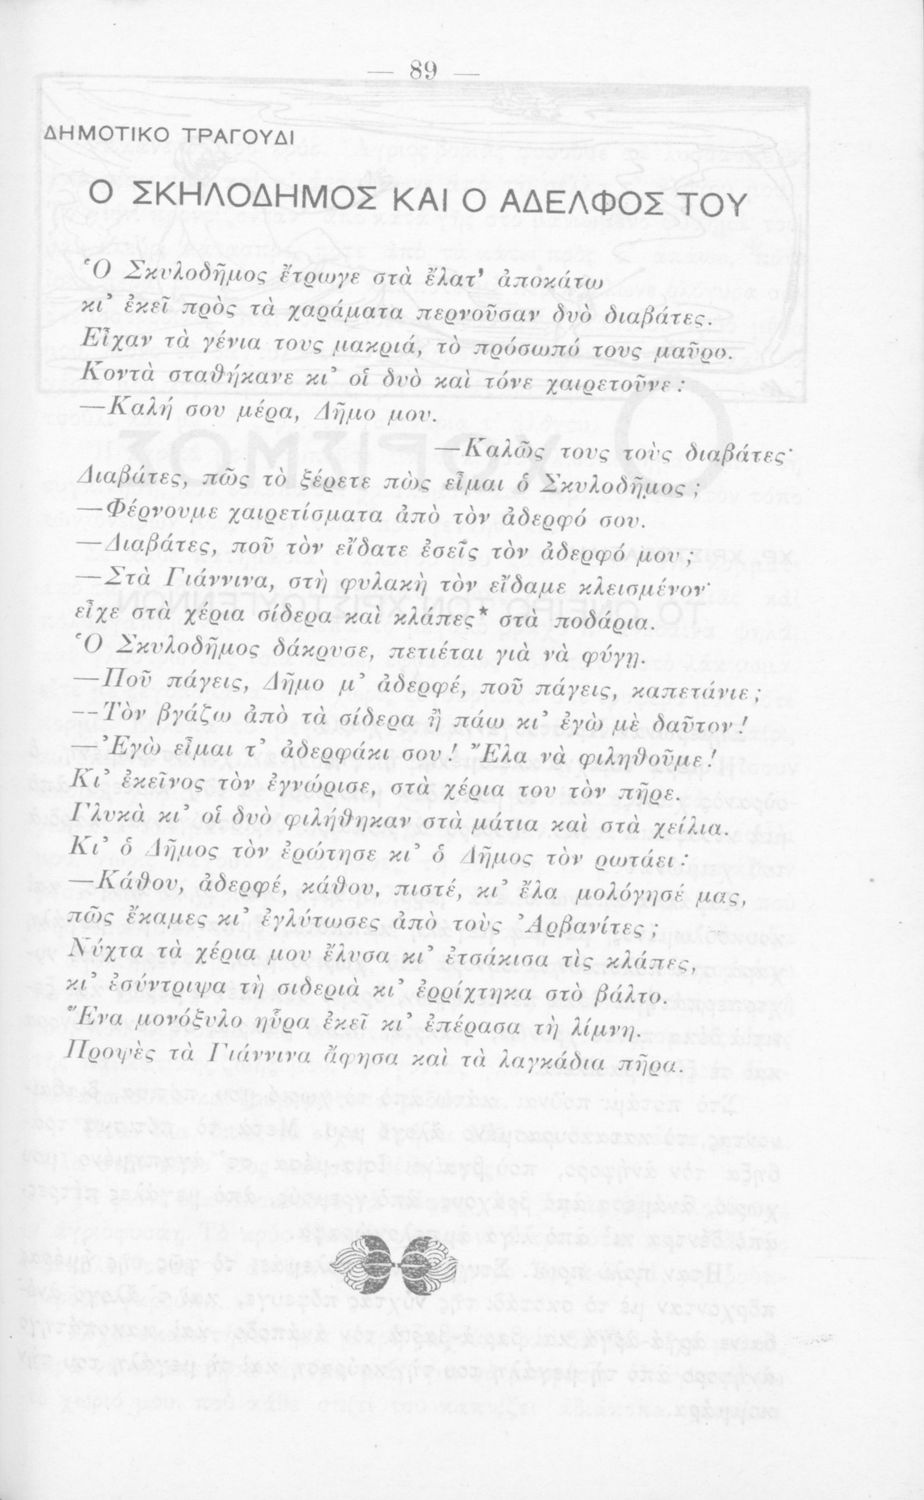 — 89 —
ΔΗΜΟΤΙΚΟ ΤΡΑΓΟΥΔΙ
Ο ΣΚΗΛΟΔΗΜΟΣ ΚΑΙ Ο ΑΔΕΛΦΟΣ ΤΟΥ
Ὁ Σκυλοδῆμος ἔτρωγε στὰ ἔλατ' ἀποκάτω
κι' ἐκεῖ πρὸς τὰ χαράματα περνοῦσαν δυὸ διαβάτες.
Εἶχαν τὰ γένια τους μακριά, τὸ πρόσωπό τους μαῦρο.
Κοντὰ σταθήκανε κι' οἱ δυὸ καὶ τόνε χαιρετοῦνε:
—Καλή σου μέρα, Δῆμο μου.
—Καλῶς τους τοὺς διαβάτες·
Διαβάτες, πῶς τὸ ξέρετε πὼς εἶμαι ὁ Σκυλοδῆμος;
—Φέρνουμε χαιρετίσματα ἀπὸ τὸν ἀδερφό σου.
—Διαβάτες, ποῦ τὸν εἴδατε ἐσεῖς τὸν ἀδερφό μου;
—Στὰ Γιάννινα, στὴ φυλακὴ τὸν εἴδαμε κλεισμένον·
εἶχε στὰ χέρια σίδερα καὶ κλάπες* στὰ ποδάρια.
Ὁ Σκυλοδῆμος δάκρυσε, πετιέται γιὰ νὰ φύγῃ.
—Ποῦ πάγεις, Δῆμο μ' ἀδερφέ, ποῦ πάγεις, καπετάνιε;
—Τὸν βγάζω ἀπὸ τὰ σίδερα ἢ πάω κι' ἐγὼ μὲ δαῦτον!
—Ἐγὼ εἶμαι τ' ἀδερφάκι σου! Ἔλα νὰ φιληθοῦμε!
Κι' ἐκεῖνος τὸν ἐγνώρισε, στὰ χέρια του τὸν πῆρε.
Γλυκὰ κι' οἱ δυὸ φιλήθηκαν στὰ μάτια καὶ στὰ χείλια.
Κι' ὁ Δῆμος τὸν ἐρώτησε κι' ὁ Δῆμος τὸν ρωτάει:
—Κάθου, ἀδερφέ, κάθου, πιστέ, κι' ἔλα μολόγησέ μας,
πῶς ἔκαμες κι' ἐγλύτωσες ἀπὸ τοὺς Ἀρβανίτες;
Νύχτα τὰ χέρια μου ἔλυσα κι' ἐτσάκισα τὶς κλάπες,
κι' ἐσύντριψα τὴ σιδεριὰ κι' ἐρρίχτηκα στὸ βάλτο.
Ἕνα μονόξυλο ηὗρα ἐκεῖ κι' ἐπέρασα τὴ λίμνη.
Προψὲς τὰ Γιάννινα ἄφησα καὶ τὰ λαγκάδια πῆρα.